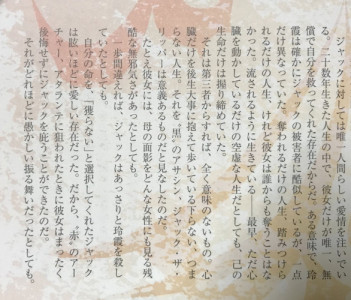 ジャックに対しては唯一、人間らしい愛情を注いでい
る。二十数年生きた人生の中で、彼女だけが唯一、無
償で自分を救ってくれた存在だからだ。ある意味で、玲
霞は確かにジャックの被害者に酷似しているが、一点
だけ異なっていた。奪われるだけの人生、踏みつけら
れるだけの人生、けれど彼女は誰からも奪うことはな
かった。流されるように生きている――最早、ただ心
臓を動かしているだけの空虚な人生だとしても、己の
生命だけは握り締めていた。
それは第三者からすれば、全く意味のないもの。心
臓だけを後生大事に抱えて歩いている下らない、つま
らない人生。それを〝黒〟のアサシン、ジャック・ザ・
リッパーは意義あるものだと見なしたのだ。
たとえ彼女には、母の面影をどんな女性にも見る残
酷な無邪気さがあったとしても。
一歩間違えれば、ジャックはあっさりと玲霞を殺し
ていたとしても。
自分の命を、「獲らない」と選択してくれたジャック
は眩いほどに愛しい存在だった。だから、〝赤〟のアー
チャー、アタランテに狙われたときに彼女はまったく
後悔せずにジャックを庇うことができたのだ。
それがどれほどに愚かしい振る舞いだったとしても。